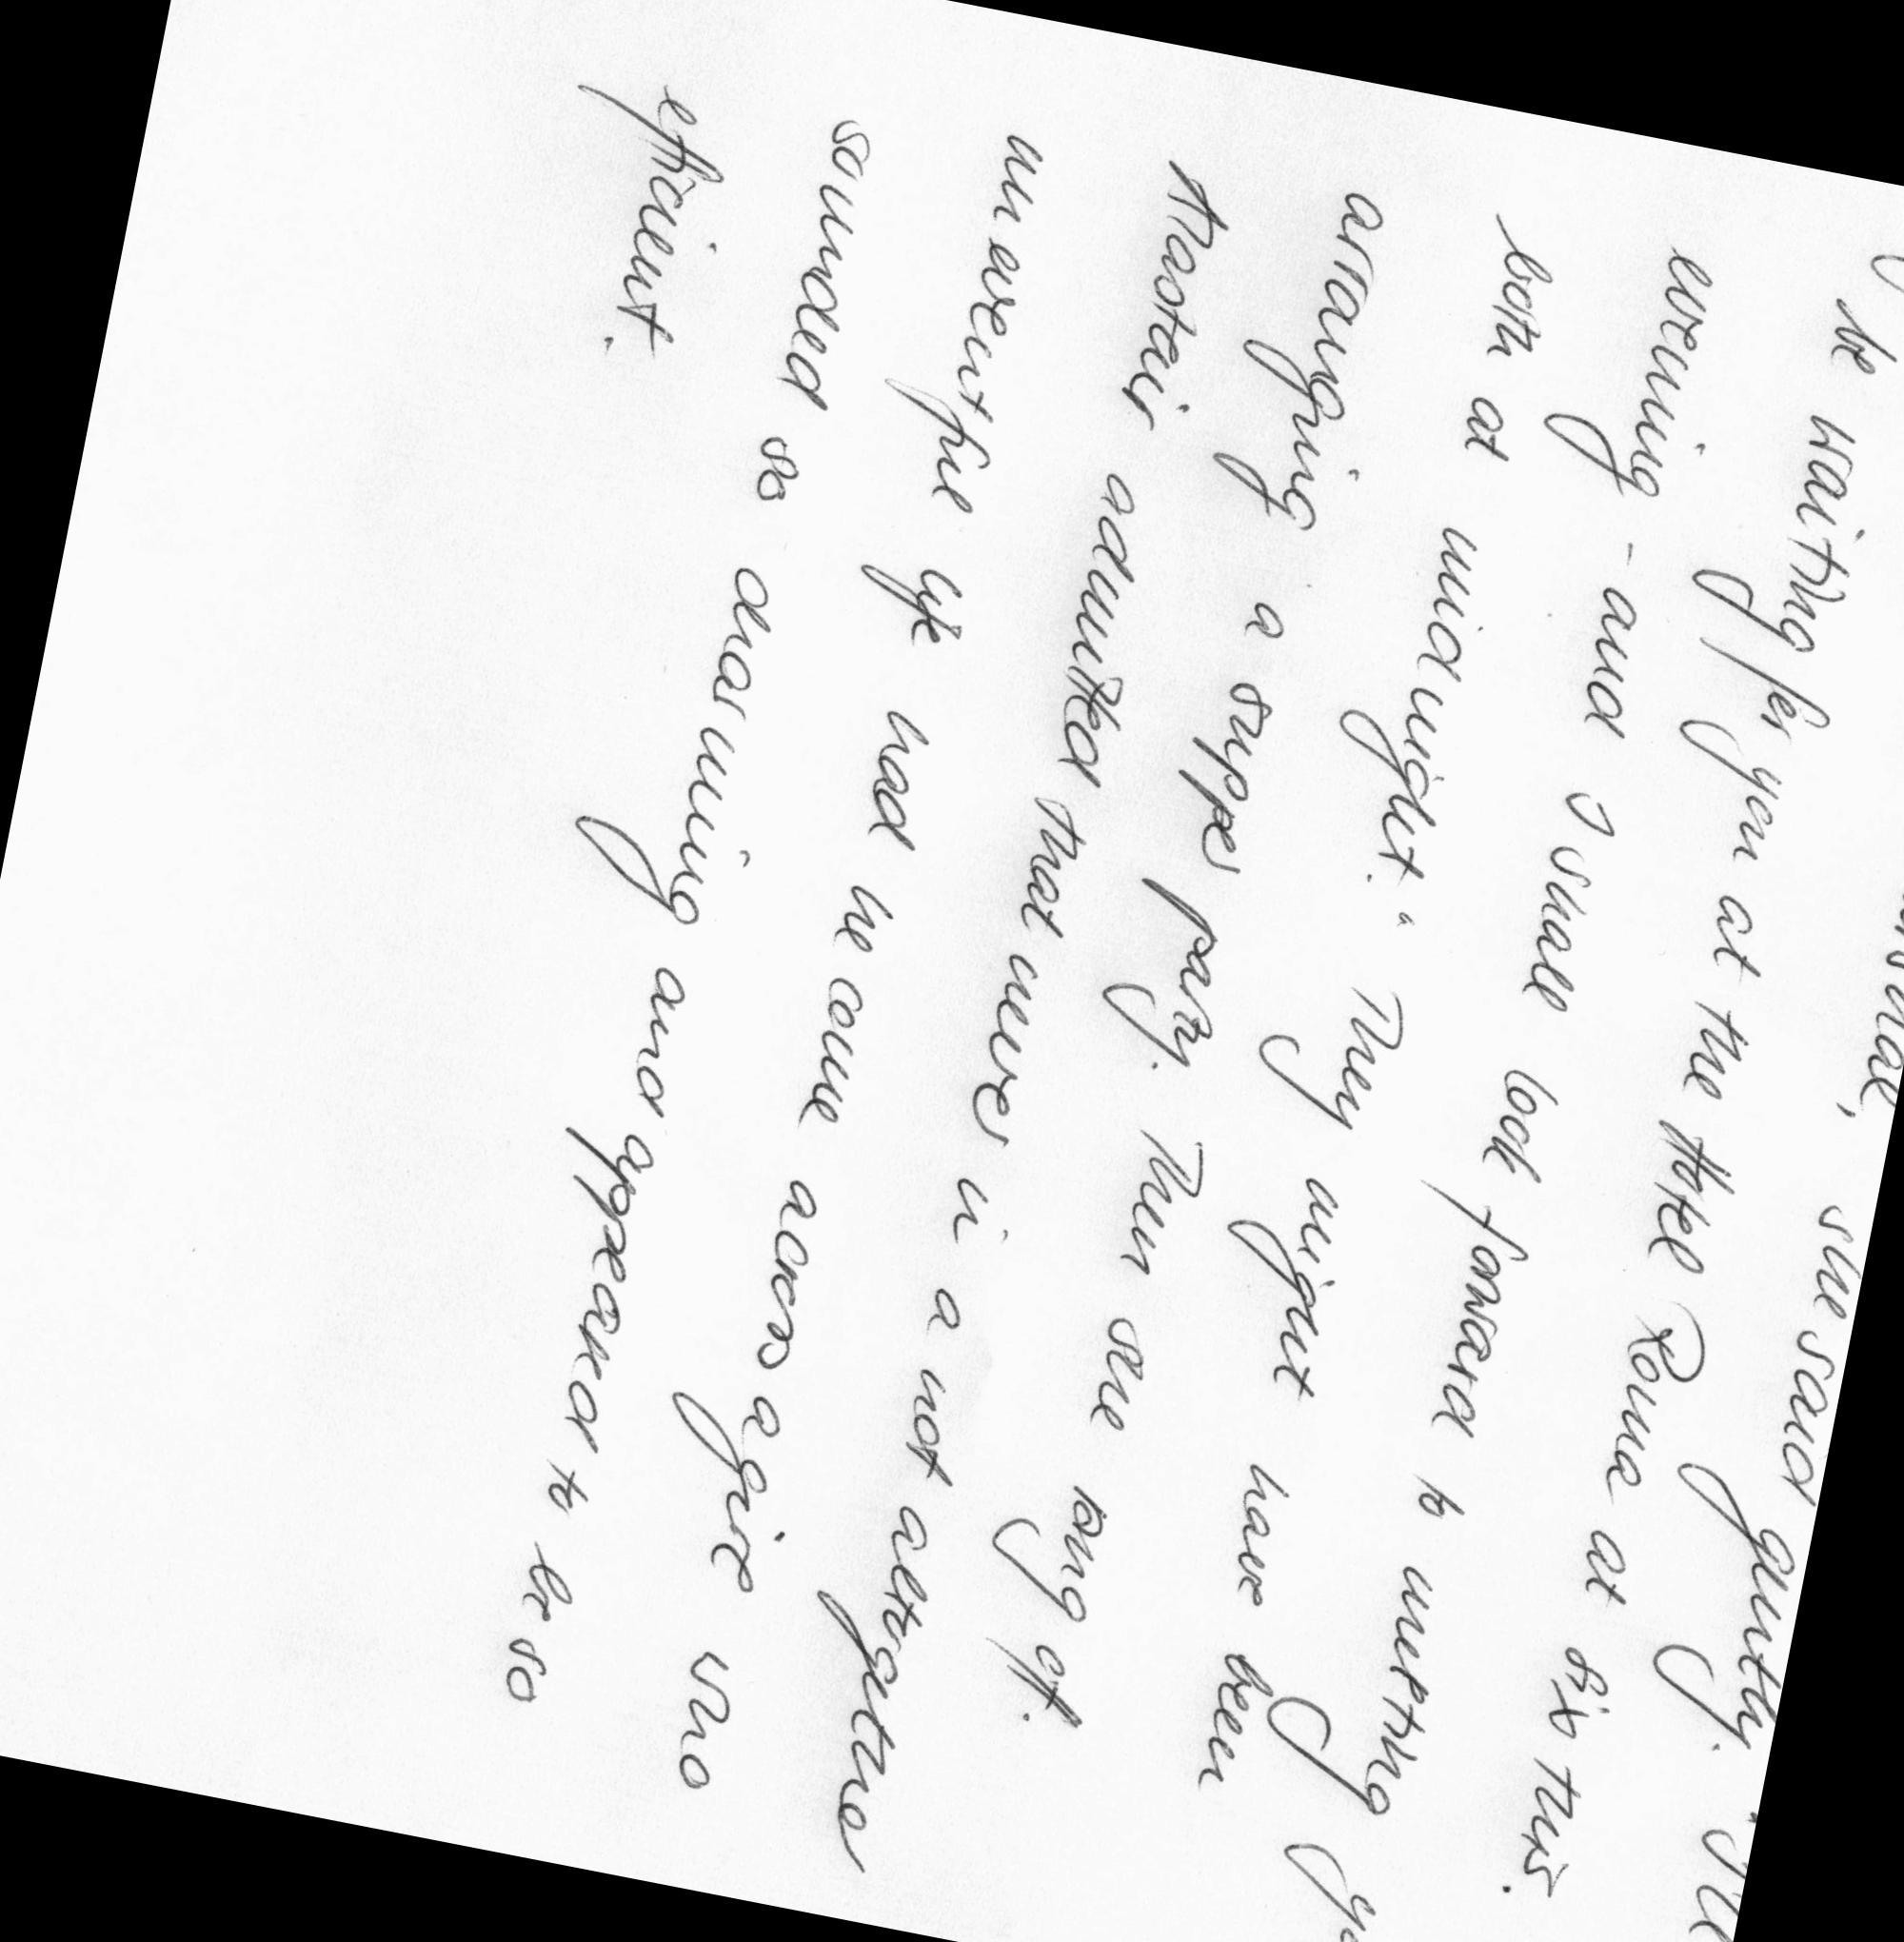 she said gently. "She
be waiting for you at the Hotel Roma at six this
evening - and I shall look forward to meeting
both at midnight." They might have been
arranging a supper party. Then she rang off.
Hastein admitted that never in a not altogether
uneventful life had he come across a girl who
sounded so charming and appeared to be so
efficient.